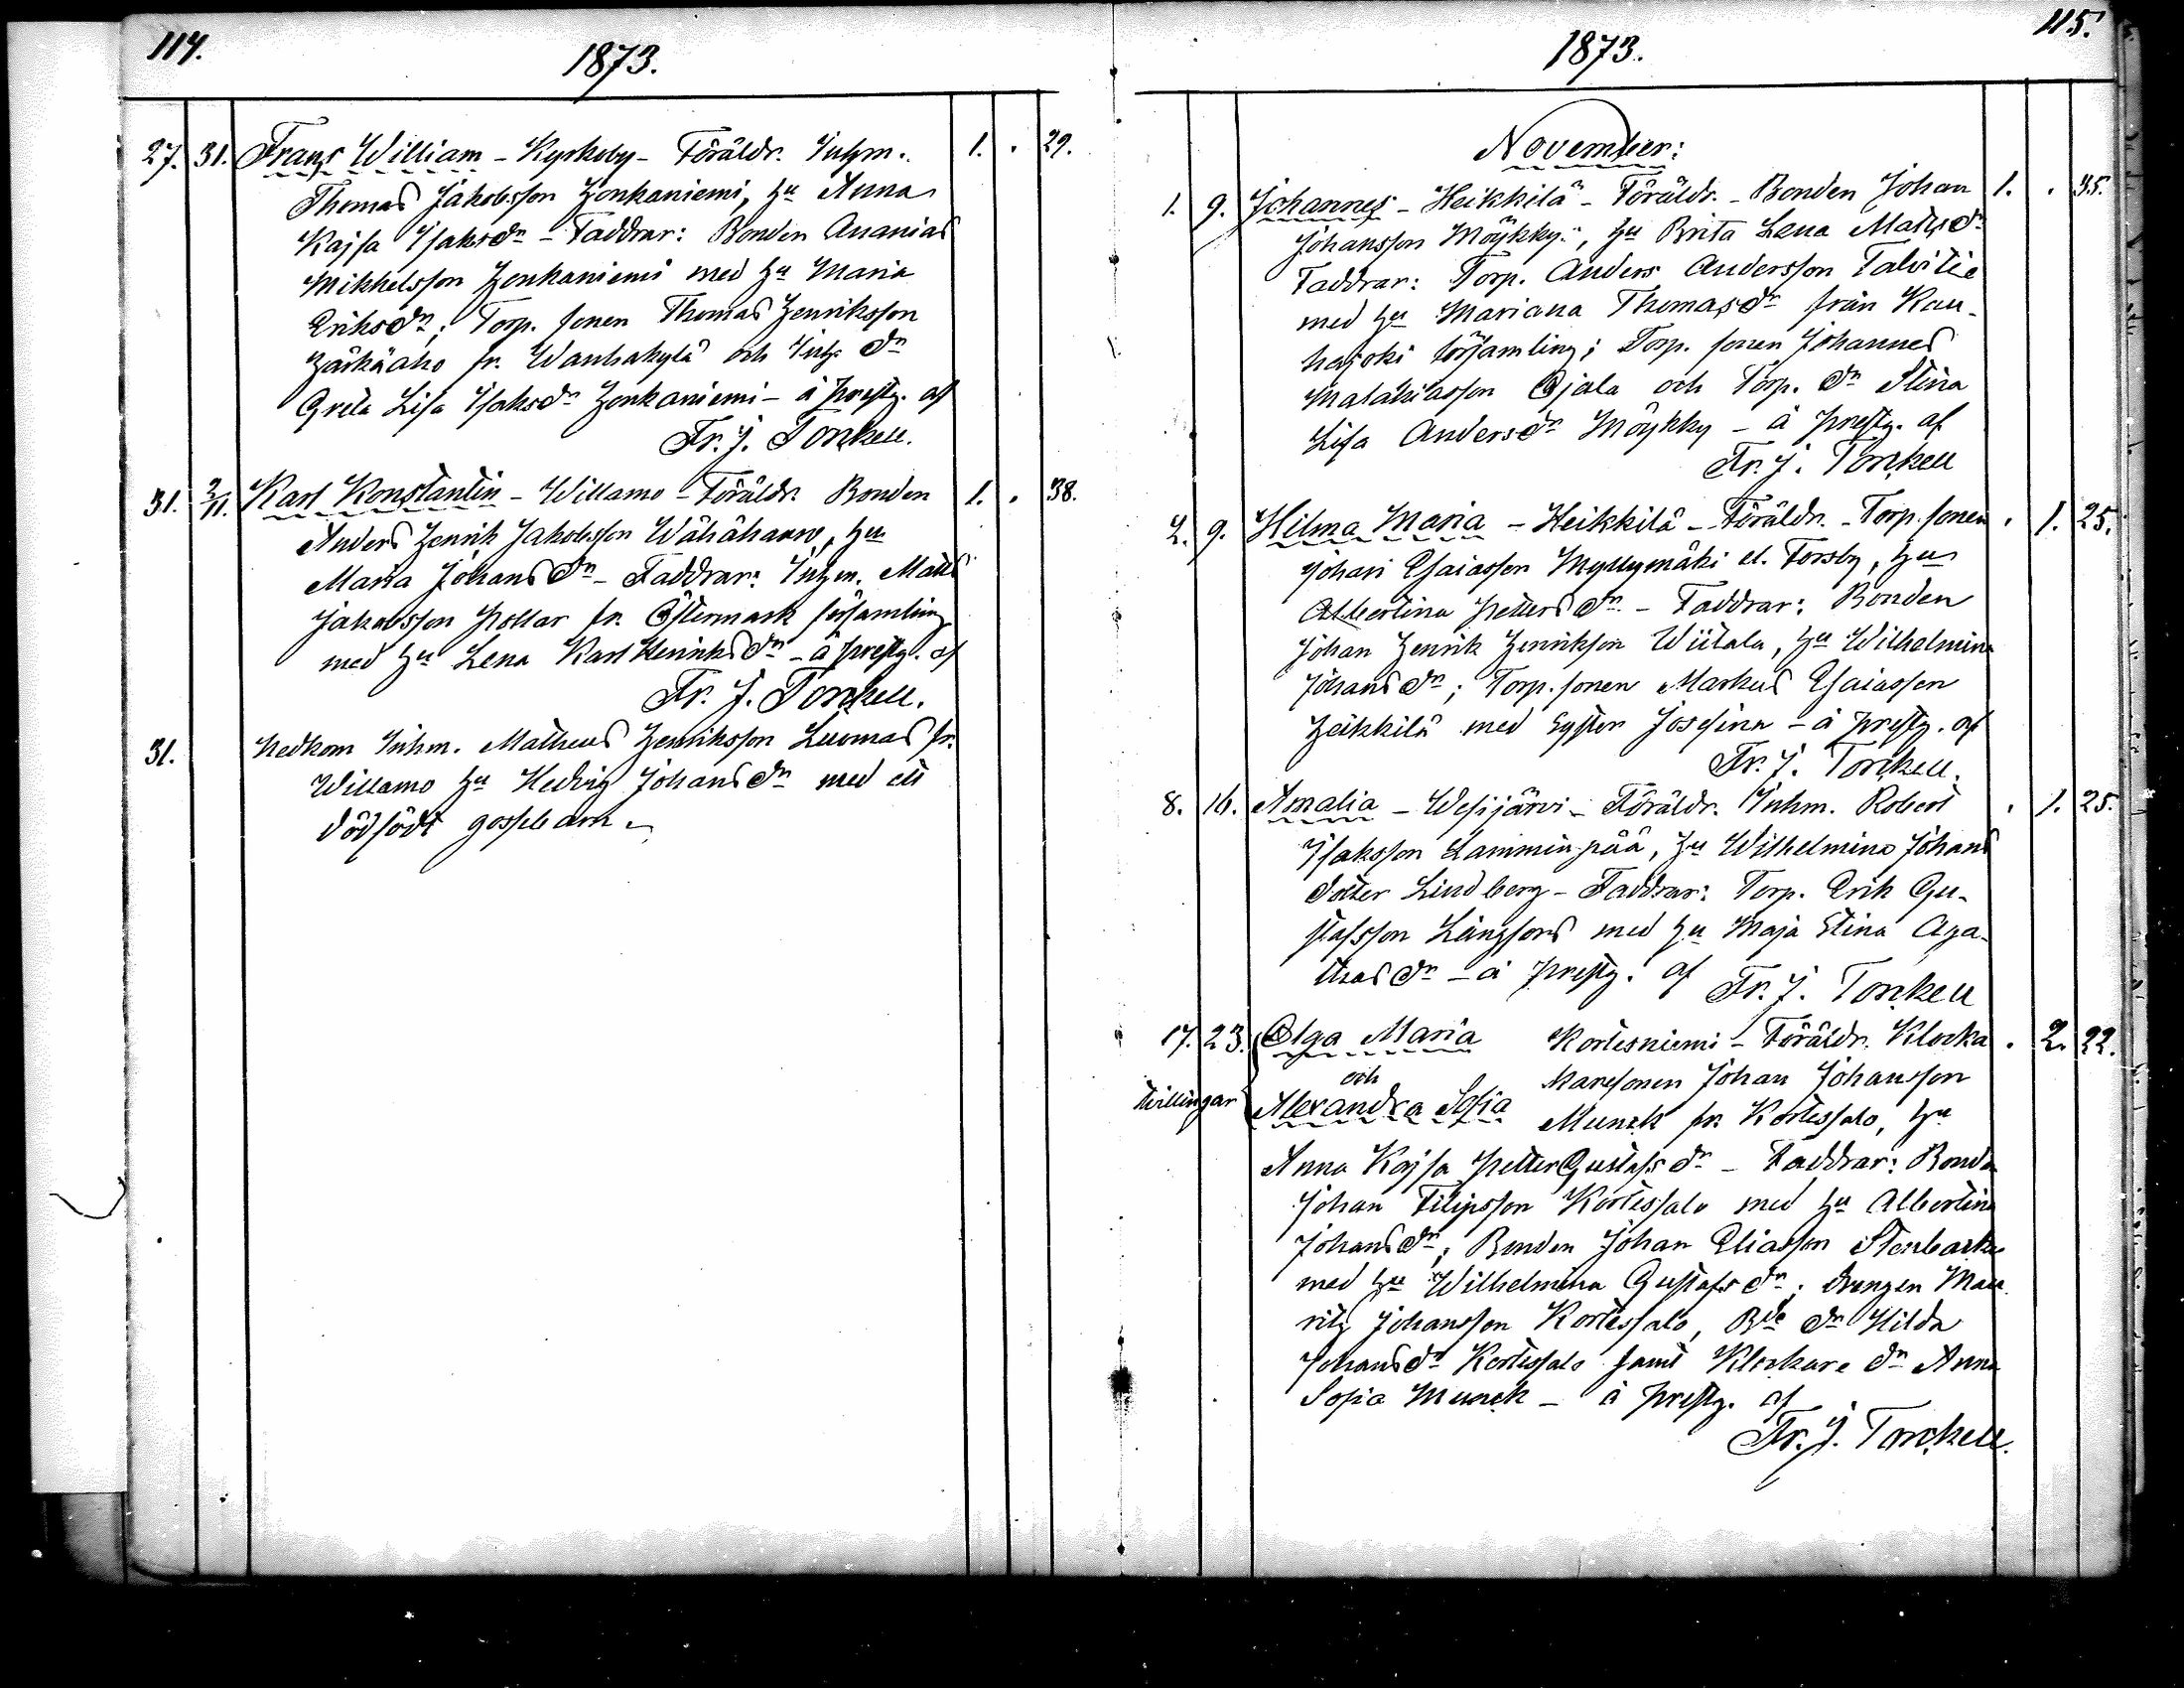 114.
1873.
27. 31. Frans William - Kyrkoby - Föräldr. Inhm. 1. . 29.
Thomas Jakobsson Honkaniemi, Hu Anna
Kajsa Isaksdr - Faddrar: Bonden Ananias
Mikkelsson Honkaniemi med Hu Maria
Eriksdr; Torp. sonen Thomas Henriksson
fr. Wanhakylä och Inh. dr
Greta Lisa Isaksdr Honkaniemi - å prestg. af
Fr. J. Torckell.
31. 2/11. Karl Konstantin - Willamo - Föräldr. Bonden 1. . 38.
Anders Henrik Jakobsson Wähäharro, Hu
Maria Johansdr - Faddrar: Inhm. Matts
Jakobsson fr. Östermark församling
med Hu Lena Karl Henriksdr - å prestg. af
Fr. J. Torckell.
31. Nedkom Inhm. Matheus Henriksson Luomas fr.
Willamo Hu Hedvig Johansdr med ett
dödfödt gossebarn
115.
1873.
November:
1. 9. Johannes - Heikkilä - Föräldr. - Bonden Johan 1. . 35.
Johansson Möykky, Hu Brita Lena Matsdr
Faddrar: Torp. Anders Andersson Talvitie
med Hu Mariana Thomasdr från Kau-
hajoki församling; Torp. sonen Johannes
Malakiasson Ojala och Torp. dr Stina
Lisa Andersdr Möykky - å prestg. af
Fr. J. Torckell
2. 9. Hilma Maria - Heikkilä - Föräldr. - Torp. sonen . 1. 25.
Johan Esaiasson Myllymäki el. Forsby, Hu
Albertina Pettersdr - Faddrar: Bonden
Johan Henrik Henriksson Wiitala, Hu Wilhelmina
Johansdr; Torp. sonen Markus Esaiasson
Heikkilä med syster Josefina - å prestg. af
Fr. J. Torckell.
8. 16. Amalia - Wesijärvi - Föräldr. Inhm. Robert . 1. 25.
Isaksson Lamminpää, Hu Wilhelmina Johans
dotter Lindberg - Faddrar: Torp. Erik Gu-
stafsson Långfors med Hu Maja Stina Aga-
thasdr - å prestg. af Fr. J. Torckell
17. 23. Olga Maria Kortesniemi - Föräldr. Klocka . 2. 22.
och karesonen Johan Johansson
tvillingar Alexandra Sofia Munck fr. Kortessalo, Hu
Anna Kajsa Petter Gustafsdr - Faddrar: Bonden
Johan Filipsson Kortessalo med Hu Albertina
Johansdr; Bonden Johan Eliasson Stenbacka
med Hu Wilhelmina Gustafsdr; drengen Mau
ritz Johansson Kortessalo, Bde dr Hilda
Johansdr Kortessalo samt Klockare dr Anna
Sofia Munck - å prestg. af
Fr. J. Torckell.